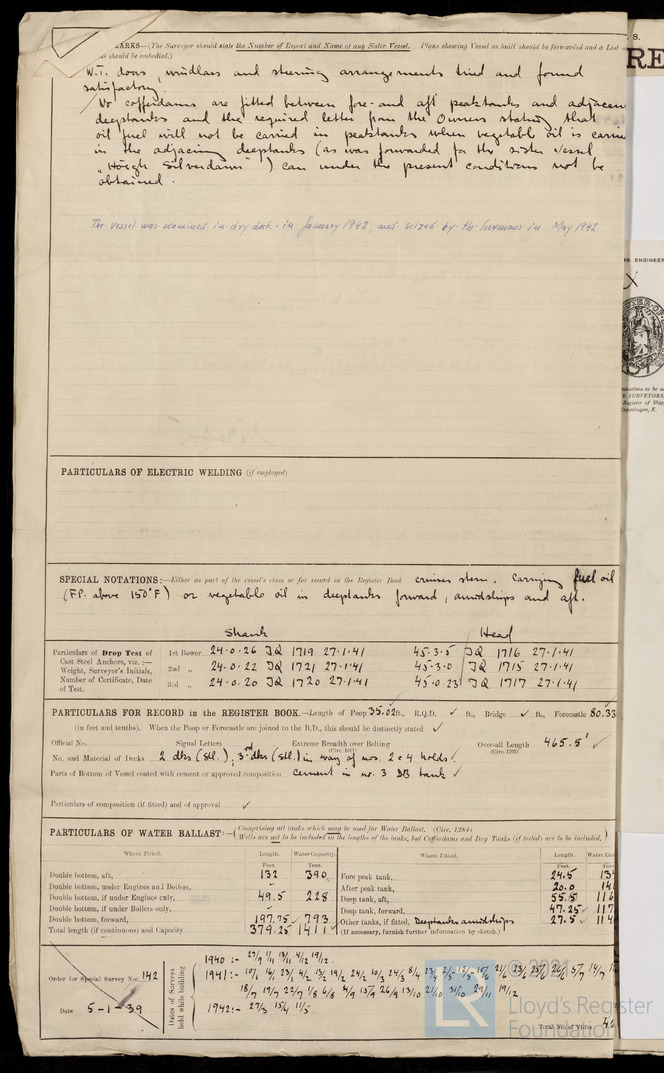 MARKS—(The Surveyor should state the Number of Report and Name of any Sister Vessel. Plans showing Vessel as built should be forwarded and a List
should be embodied.)
W.T. doors, windlass and steering arrangements tried and found
satisfactory.
No cofferdams are fitted between fore- and aft peaktanks and adjacen
deeptanks and the required letter from the Owners stating that
oil fuel will not be carried in peaktanks when vegetable oil is carrie
in the adjacing deeptanks (as was forwarded for the sister vessel
"Höegh Silverdawn") can under the present conditions not be
obtained.
The vessel was examined in dry dock in January 1942, and seized by the Germans in May 1942.
PARTICULARS OF ELECTRIC WELDING (if employed)
SPECIAL NOTATIONS:—Either as part of the vessel's class or for record in the Register Book cruiser stern. Carrying fuel oil
(F.P. above 150°F) or vegetable oil in deeptanks forward, amidships and aft.
Shank Head
Particulars of Drop Test of
Cast Steel Anchors, viz.:—
Weight, Surveyor's Initials,
Number of Certificate, Date
of Test.
1st Bower 24-0-26 JQ 1719 27-1-41 45-3-5 JQ 1716 27-1-41
2nd „ 24-0-22 JQ 1721 27-1-41 45-3-0 JQ 1715 27-1-41
3rd „ 24-0-20 JQ 1720 27-1-41 45-0-23 JQ 1717 27-1-41
PARTICULARS FOR RECORD in the REGISTER BOOK.—Length of Poop 35.02 ft., R.Q.D. ✓ ft., Bridge ✓ ft., Forecastle 80.33
(in feet and tenths). When the Poop or Forecastle are joined to the B.D., this should be distinctly stated ✓
Official No. Signal Letters Extreme Breadth over Belting Over-all Length 465.5' ✓
(Circ. 1611) (Circ. 1703)
No. and Material of Decks 2 dks (Stl.), 3rd dks (Stl.) in way of nos. 2 & 4 holds
Parts of Bottom of Vessel coated with cement or approved composition cement in no. 3 DB tank ✓
Particulars of composition (if fitted) and of approval ✓
PARTICULARS OF WATER BALLAST:—(Comprising all tanks which may be used for Water Ballast. (Circ. 1284)
Wells are not to be included in the lengths of the tanks, but Cofferdams and Dry Tanks (if tested) are to be included.)
Where Fitted. Length. Water Capacity.
Feet. Tons.
Double bottom, aft, 132 390
Double bottom, under Engines and Boilers, -
Double bottom, if under Engines only, 49.5 228
Double bottom, if under Boilers only, -
Double bottom, forward, 197.75 793
Total length (if continuous) and Capacity 379.25 1411
Where Fitted. Length. Water Cap
Feet. Tons
Fore peak tank, 24.5
After peak tank, 20.0
Deep tank, aft, 55.5
Deep tank, forward, 47.25
Other tanks, if fitted, Deeptanks amidships 27.5
(If necessary, furnish further information by sketch.)
Order for Special Survey No. 142
Date 5-1-39
Dates of Surveys held while building
1940:- 27/9 1/11 13/11 4/12 19/12.
1942:- 27/3 15/4 11/5.
Total No. of Visits
© 2021
Lloyd's Register
Foundation
RE